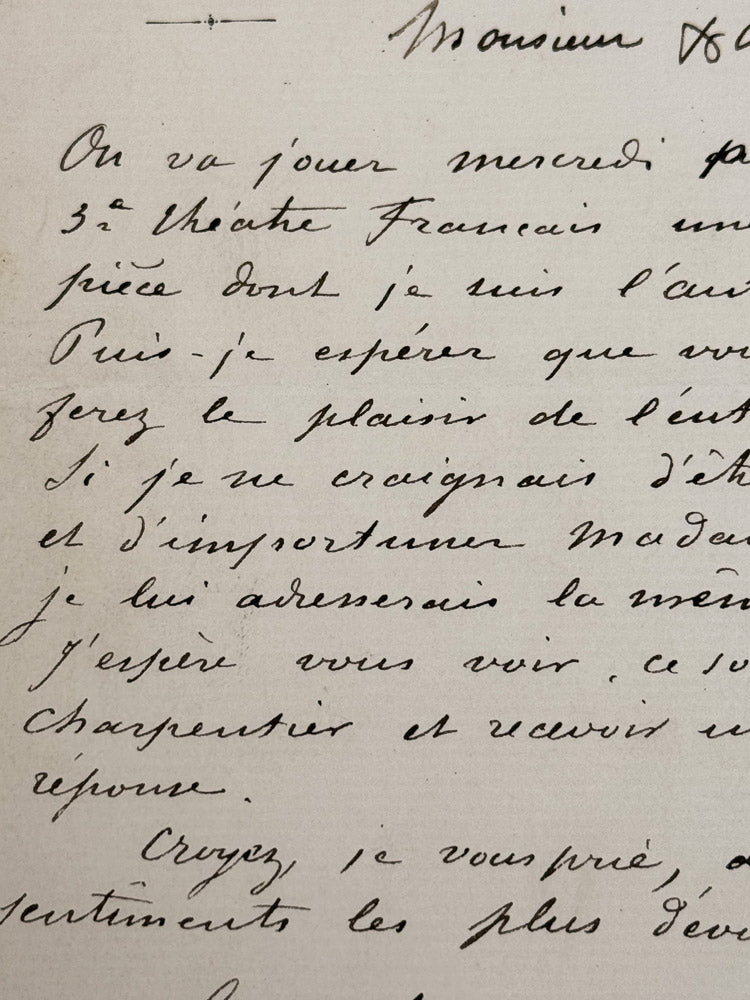 Monsieur
On va jouer mercredi
3e théâtre Français une
pièce dont je suis l'au
Puis-je espérer que vou
ferez le plaisir de l'ent
Si je ne craignais d'êt
et d'importuner Mada
je lui adresserais la mêm
J'espère vous voir, ce so
Charpentier et recevoir u
réponse.
Croyez, je vous prie, a
sentiments les plus dévo